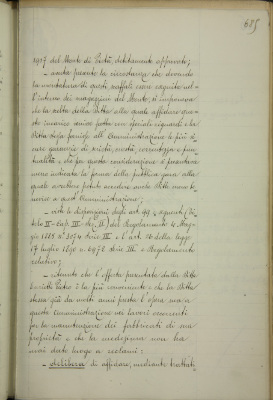 685
1927 del Monte di Pietà, debitamente approvato;
– avuta presente la circostanza che dovendo
la montatura di questi scaffali essere eseguita nel-
l'interno dei magazzini del Monte, si imponeva
la scelta della Ditta alla quale affidare que-
sto incarico avuto fatta con speciali riguardi e la
Ditta stessa fornisse all'Amministrazione le più si-
cure garanzie di serietà, onestà, correttezza e pun-
tualità – da questa considerazione
venne indicata la forma della pubblica gara alla
quale avrebbe potuto accedere anche Ditte non be-
nevise a quest'Amministrazione;
– viste le disposizioni degli art. 99 e seguenti (Ti-
tolo II – Cap. III – Sez. II) del Regolamento 4 Mag-
gio 1885 n° 3074 Serie III – l'art. 16 della legge
17 luglio 1890 n. 6972 Serie III e Regolamento
relativo;
– ritenuto che l'offerta presentata dalla Ditta
Pietro è la più conveniente e che la Ditta
stessa già da molti anni presta l'opera sua a
questa Amministrazione nei lavori occorrenti
per la manutenzione dei fabbricati di sua
proprietà e che la medesima non ha
mai dato luogo a reclami:
– delibera di affidare, mediante trattati-